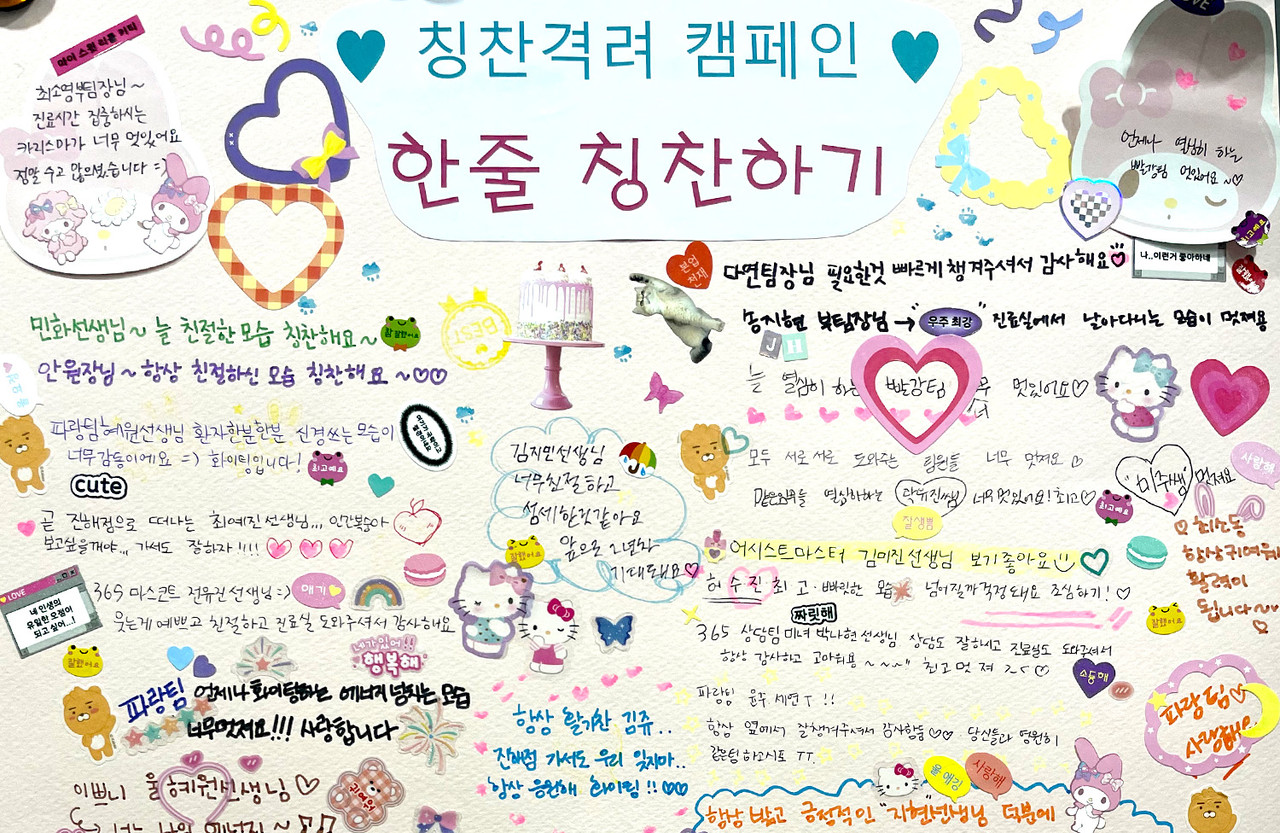 칭찬격려 캠페인
한줄 칭찬하기
최소영부팀장님~
진료시간 집중하시는
카리스마가 너무 멋있어요
정말 수고 많으셨습니다 =)
언제나 열심히 하는
빨강팀 멋있어요~♡
나..이런거 좋아하네
최고예요
본업
천재
다연팀장님 필요한것 빠르게 챙겨주셔서 감사해요
송지현 부팀장님 → 우주 최강 진료실에서 날아다니는 모습이 멋져용
JH
민화선생님~ 늘 친절한 모습 칭찬해요~
참 잘했어요
BEST
안원장님~ 항상 친절하신 모습 칭찬해요 ~♡♡
늘 열심히 하는 빨강팀 너무 멋있어요♡
파랑팀 혜원선생님 환자한분한분 신경쓰는모습이
너무감동이에요 =) 화이팅입니다!
최고예요
cute
김지민선생님
너무친절하고
섬세한것같아요
앞으로 2년차
기대돼요♡
잘했어요
모두 서로서로 도와주는 팀원들 너무 멋져요♡
열심하하는 너무멋있어요! 최고♡
잘생쁨
최고예요
"미주쌤" 멋져요
사랑해
곧 진해점으로 떠나는 최예진선생님,,, 인간복숭아
보고싶을꺼야,,, 가서도 잘하자!!!!
어시스트마스터 김미진선생님 보기좋아요
♡ 최소동
항상귀여워
활력이
됩니다~♡
허수진최고 - 빠릿한 모습 넘어질까걱정돼요 조심하기! ♡
짜릿해
LOVE
네 인생의
유일한 오점이
되고 싶어...!
365 마스코트 전유진선생님 =)
애기
웃는게 예쁘고 친절하고 진료실 도와주셔서 감사해요
잘했어요
365 상담팀미녀 박나현선생님 상담도 잘하시고 진료실도 도와주셔서
항상 감사하고 고마워용 ~~~" 최고멋져 ♡
잘했어요
소듕해
네가 있어!!
행복해
파랑팀 언제나 화이팅하는 에너지 넘치는 모습
너무멋져요!!! 사랑합니다
파랑팀 윤주 세연 T !!
항상 옆에서 잘챙겨주셔서 감사함둥♡♡ 당신들과 영원히
같은팀하고시포 TT.
항상 활기찬 김쥬..
진해점 가서도 우리 잊지마..
항상 응원해 화이팅!! ♡♡
파랑팀♡
사랑해요
이쁘니 울혜원선생님♡
귀여워
사랑해
항상 밝고 긍정적인 "지현"선생님 덕분에